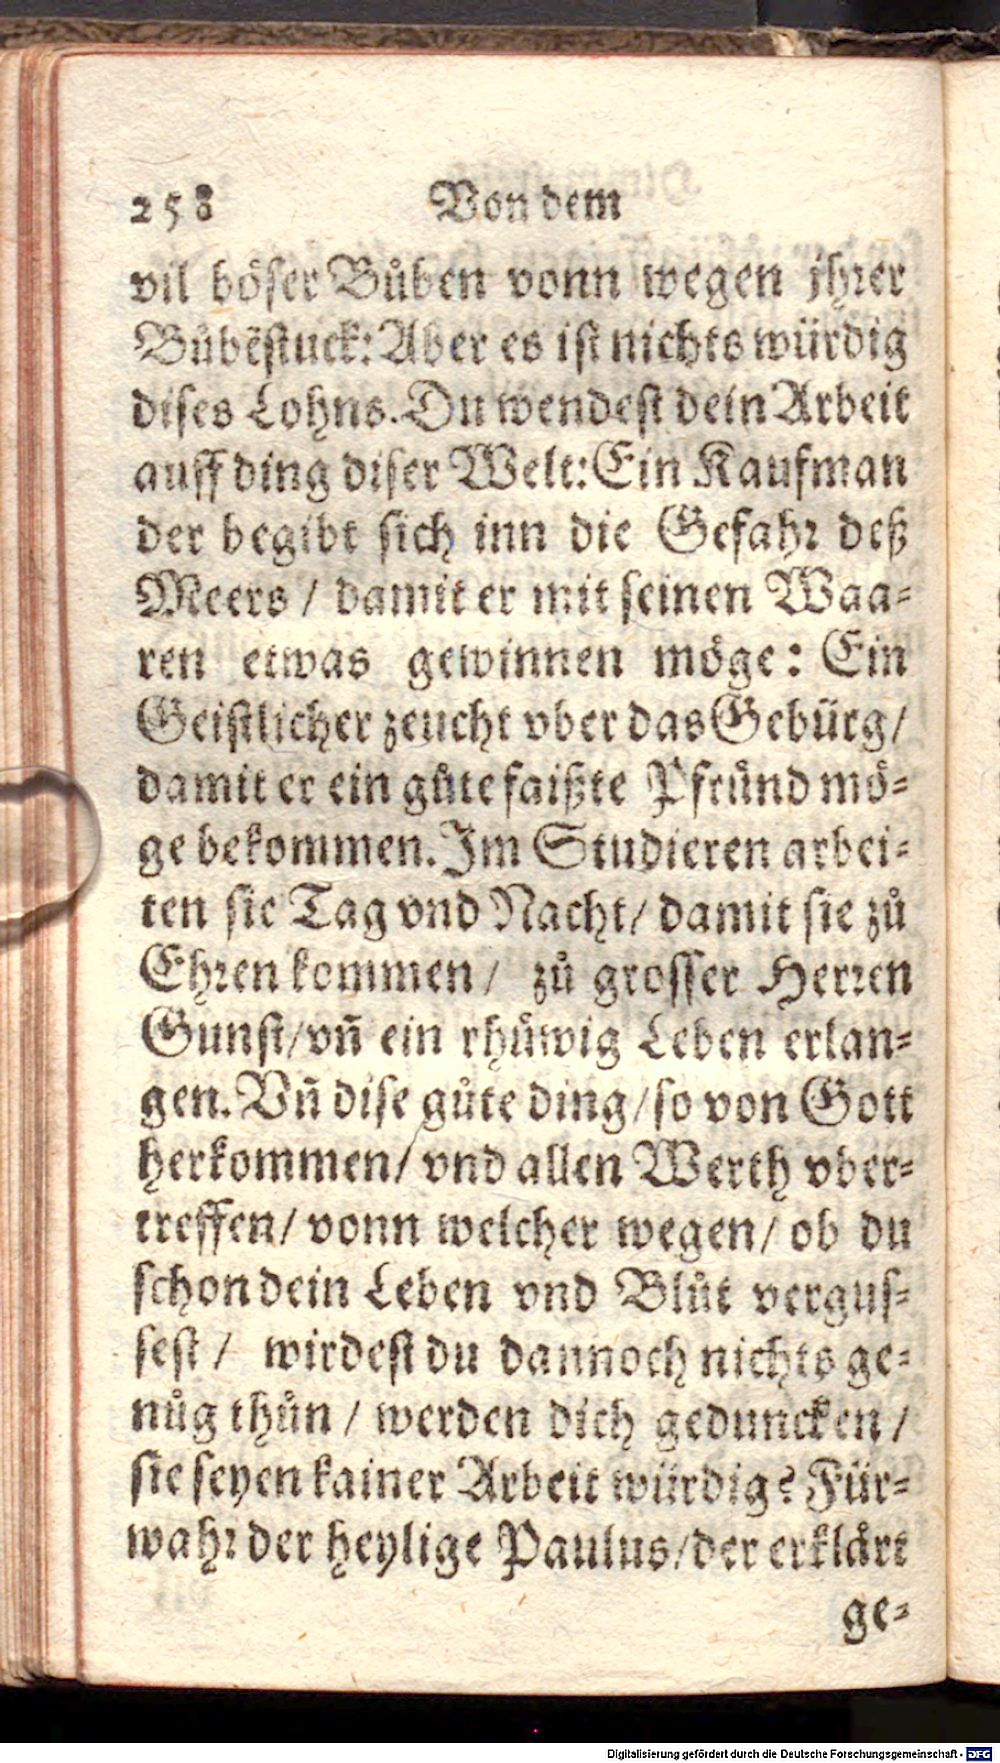 258 Von dem
vil böser Bůben vonn wegen jhrer
Bůbẽstuck: Aber es ist nichts würdig
dises Lohns. Du wendest dein Arbeit
auff ding diser Welt: Ein Kaufman
der begibt sich inn die Gefahr deß
Meers / damit er mit seinen Waa-
ren etwas gewinnen möge: Ein
Geistlicher zeucht vber das Gebürg/
damit er ein gůte faißte Pfründ mö-
ge bekommen. Im Studieren arbei-
ten sie Tag vnd Nacht/ damit sie zů
Ehren kommen / zů grosser Herren
Gunst/ vñ ein rhůwig Leben erlan-
gen. Vñ dise gůte ding/ so von Gott
herkommen/ vnd allen Werth vber-
treffen/ vonn welcher wegen/ ob du
schon dein Leben vnd Blůt vergus-
sest / wirdest du dannoch nichts ge-
nůg thůn / werden dich geduncken /
sie seyen kainer Arbeit würdig? Für-
wahr der heylige Paulus/ der erklårt
ge-
Digitalisierung gefördert durch die Deutsche Forschungsgemeinschaft - DFG